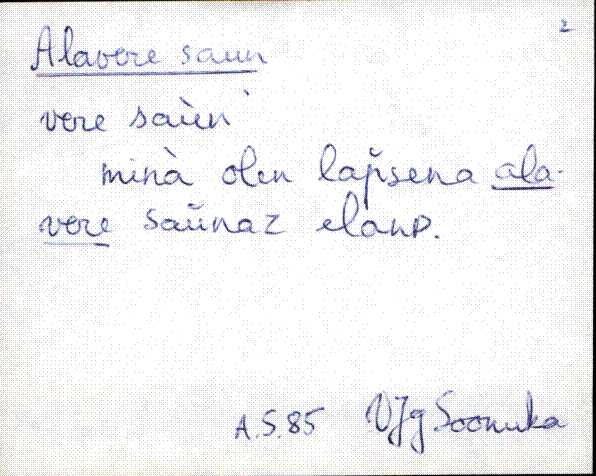 2
Alavere saun
vere saùn'
minà olen lap̆sena ala-
vere saŭnaz elanD.
A.S.85 VJg Soonuka